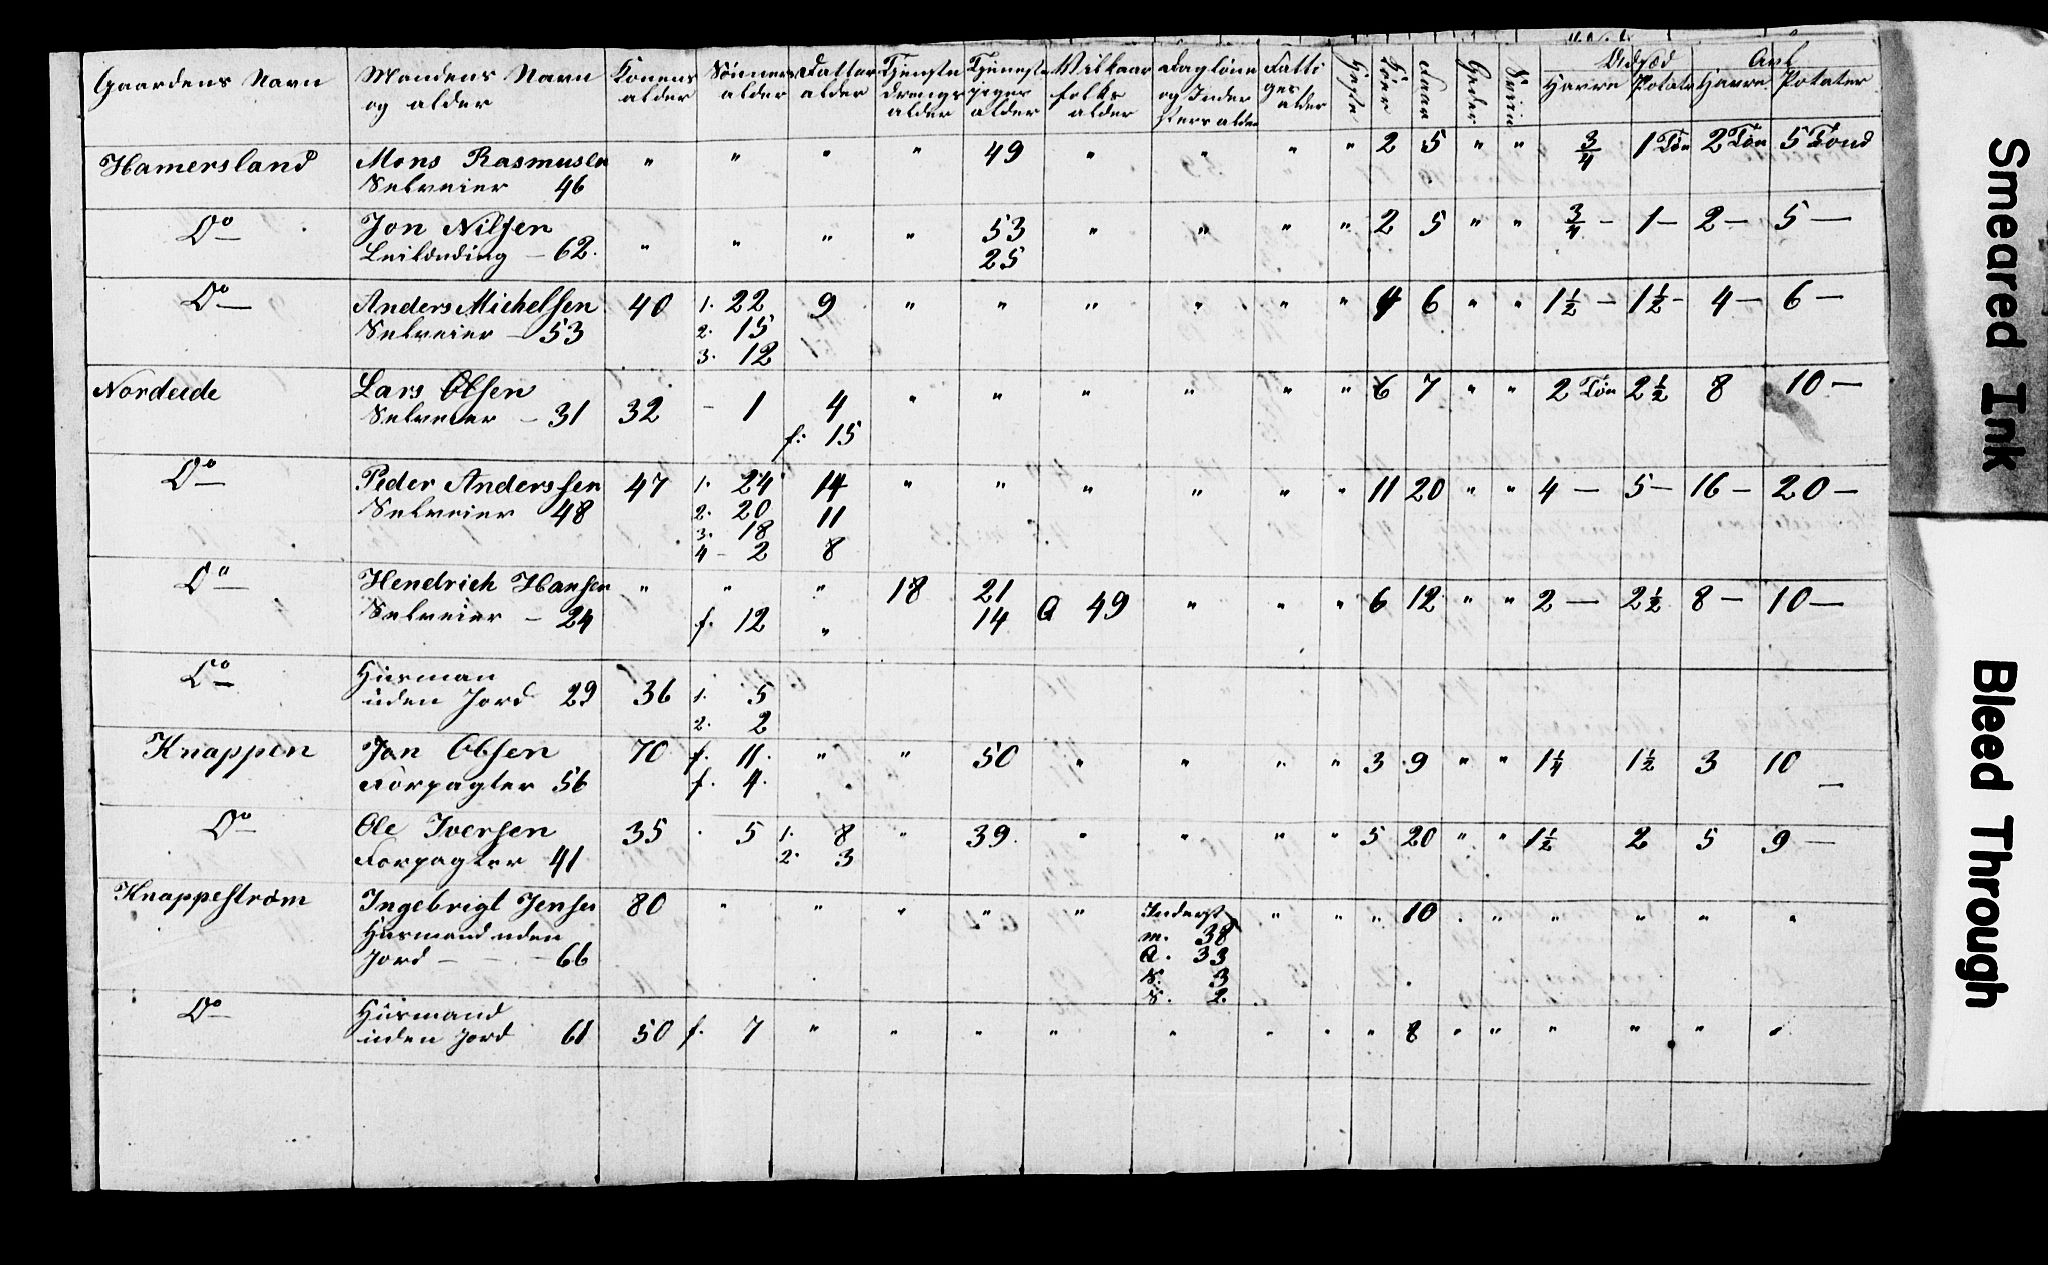 Gaardens Navn | Mandens Navn og alder | Konens alder | Sönners alder | Datter alder | Tjenste drengs alder | Tjeneste piger alder | Vilkaar folks alder | Daglöne og Inder sters alder | Fatti ges alder | Heste | Kiør | Faar | Geder | Sviin | Udsæd Havre | Potater | Avl Havre | Potater
Hamersland | Mons Rasmusen | " | " | " | " | 49 | " | " | " | " | 2 | 5 | " | " | 3/4 | 1 Tön | 2 Tön | 5 Tond
Selveier 46
Do | Jon Nilsen | " | " | " | " | 53 | " | " | " | " | 2 | 5 | " | " | 3/4 – | 1 – | 2 – | 5 –
Leilænding – 62. | 25
Do | Anders Michelsen | 40 | 1. 22 | 9 | " | " | " | " | " | " | 4 | 6 | " | " | 1 1/2 – | 1 1/2 – | 4 – | 6 –
Selveier – 53 | 2. 15
3. 12
Nordeide | Lars Olsen
Selveier – 31 | 32 | – 1 | 4 | " | " | " | " | " | " | 6 | 7 | " | " | 2 Tön | 2 1/2 | 8 | 10 –
f. 15
Do | Peder Anderssen | 47 | 1. 24 | 14 | " | " | " | " | " | " | 11 | 20 | " | " | 4 – | 5 – | 16 – | 20 –
Selveier 48 | 2. 20 | 11
3. 18
4 – 2 | 8
Do | Hendrich Hansen | " | " | " | 18 | 21 | Q 49 | " | " | " | 6 | 12 | " | " | 2 – | 2 1/2 | 8 – | 10 –
Selveier – 24 | f. 12 | " | 14
Do | Husman
uden Jord 29 | 36 | 1. 5
2. 2
Knappen | Jon Olsen | 70 | f. 11. | " | " | 50 | " | " | " | " | 3 | 9 | " | " | 1 1/4 | 1 1/2 | 3 | 10 –
Forpagter 56 | f. 4.
Do | Ole Iversen | 35 | . 5 | 1. 8 | " | 39. | " | " | " | " | 5 | 20 | " | " | 1 1/2 | 2 | 5 | 9 –
Forpagter 41 | 2. 3
Knappeström | Ingebrigt Jensen | 80 | " | " | " | " | " | Inderst | " | " | " | 10 | . | " | " | " | " | "
Husmand uden | m. 38
Jord – – – 66 | Q. 33
S. 3
S. 2
Do | Husmand
uden Jord 61 | 50 | f. 7 | " | " | " | " | " | " | " | " | 8 | " | " | " | " | " | "
Smeared Ink
Bleed Through